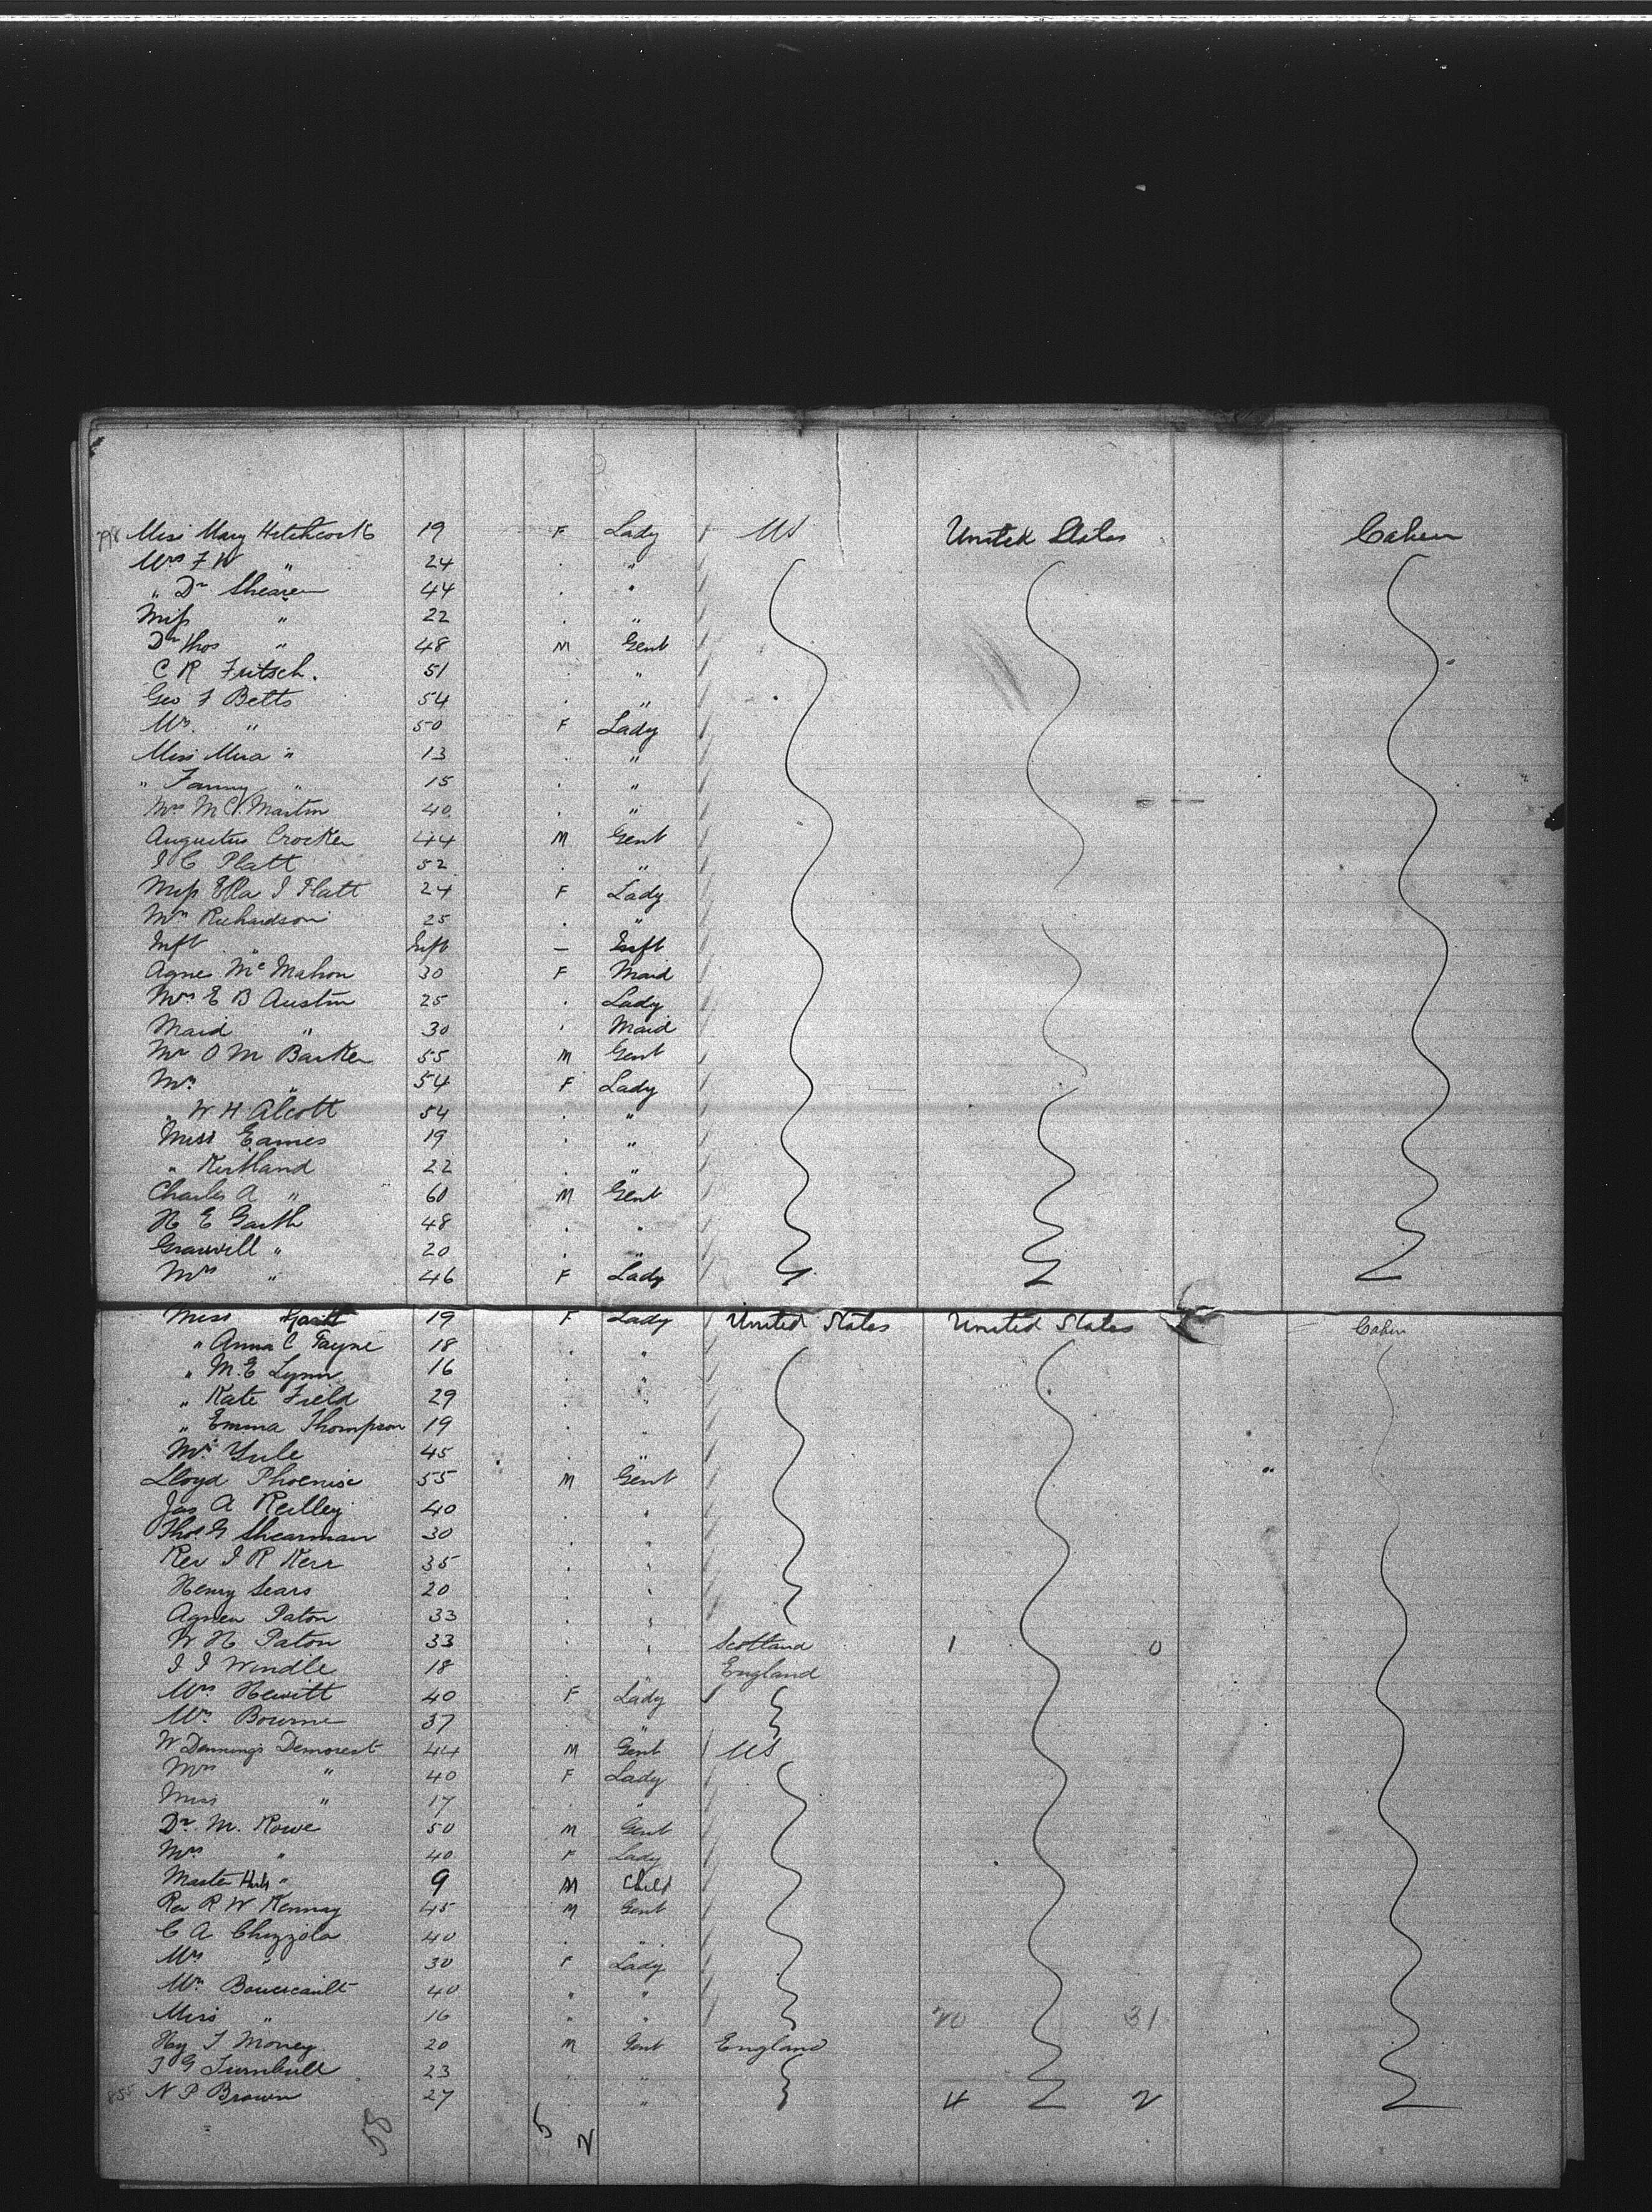 798 Miss Mary Hitchcock 19 F Lady US United States Cabin
Mrs F W " 24 . "
" Dr Shearer 44 . "
Miss " 22 . "
Dr Thos " 48 M Gent
C R Fritsch. 51 . "
Geo F Betts 54 . "
Mrs. " 50 F Lady
Miss Mira " 13 . "
" Fanny " 15 . "
Mrs M C. Martin 40 . "
Augustus Crocker 44 M Gent
J C Platt 52 . "
Miss Ella J Platt 24 F Lady
Mrs Richardson 25 . "
Inft " Inft — Inft
Agnes McMahon 30 F Maid
Mrs E B Austin 25 . Lady
Maid " 30 . Maid
Mr O M Barker 55 M Gent
Mrs " 54 F Lady
" W H Alcott 54 . "
Miss Eames 19 . "
" Kirtland 22 . "
Charles A " 60 M Gent
H E Garth 48 . "
Granvill " 20 . "
Mrs " 46 F Lady
Miss Garth 19 F Lady United States United States Cabin
" Anna C Payne 18 . "
" M. E Lynn 16 . "
" Kate Field 29 . "
" Emma Thompson 19 . "
Mrs Yule 45 . "
Lloyd Phoenix 55 M Gent
Jas A Reilley 40 . "
Thos. G Shearman 30 . "
Rev J R Kerr 35 . "
Henry Sears 20 . "
Agnew Paton 33 . "
W H Paton 33 . " Scotland 1 0
J J Windle 18 . " England
Mrs Hewitt 40 F Lady
Mrs Bourne 37 . "
W Dennings Demorest 44 M Gent US
Mrs " 40 F Lady
Miss " 17 . "
Dr. M. Rowe 50 M Gent
Mrs " 40 F Lady
Master " 9 M Child
Rev R W Kenney 45 M Gent
C A Chizzola 40 . "
Mrs " 30 F Lady
Mrs Boucicault 40 " "
Miss " 16 " " 20 31
Hy T Money 20 M Gent England
J G Turnbull 23 . "
855 N P Brown 27 . " 4 2
58 5 2